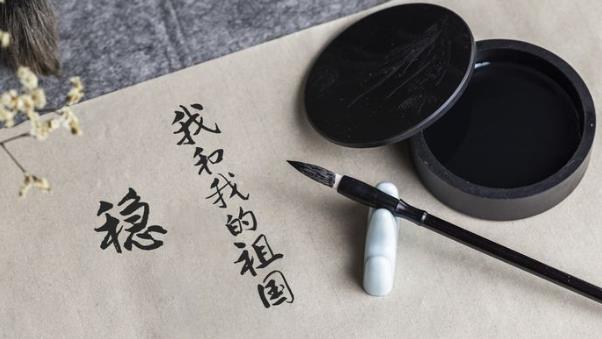 我和我的祖国
稳